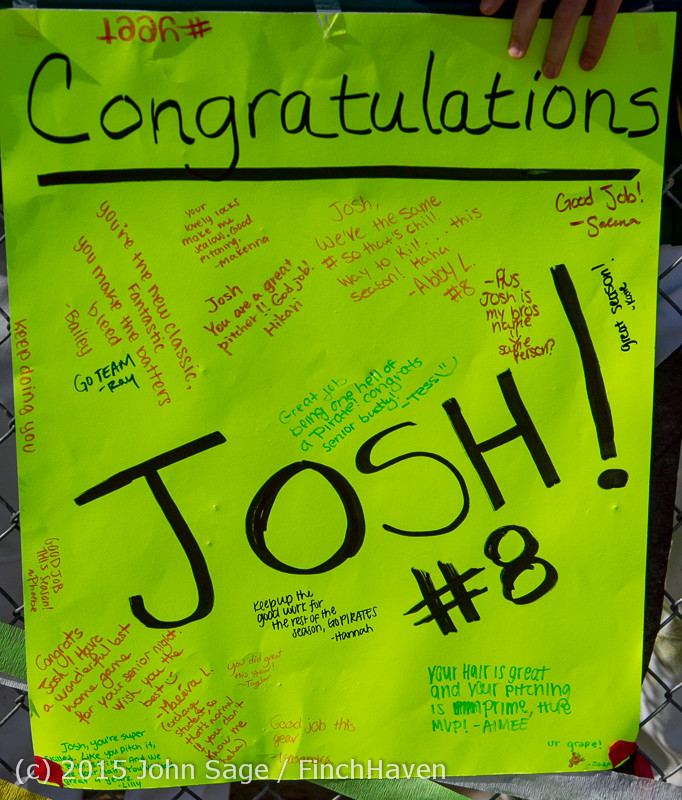 #yeet
Congratulations
Good Job!
-Salena
your
lovely locks
make me
jealous. Good
Pitching.
-Makenna
Josh,
We've the same
# so that's chill.
Way to Kill.... this
season! Haha
-Abby L.
#8
you're the new classic,
you make the batters
bleed
Fantastic
-Bailey
Josh
You are a great
pitcher!! God job!
Hikari
-Plus
Josh is
my bros
name
same
person?
great season!
-Kore
GO TEAM
-Ray
keep doing you
Great job
being one hell of
a pirate! congrats
senior buddy!
-Tess
JOSH!
#8
GOOD JOB
THIS SEASON!
~Phoebe
Keep up the
good work for
the rest of the
season, GO PIRATES
-Hannah
Congrats
Josh! Have
a wonderful last
home game
for your senior night.
wish you the
best
L.
that's normal
if you don't
know me
haha)
you did great
this
-Taylor
Good job this
year
Your Hair is great
and your pitching
is prime,
MVP! -AIMEE
ur grape!
Josh, you're super
Like you pitch it,
And we
-Lilly
(c) 2015 John Sage / FinchHaven